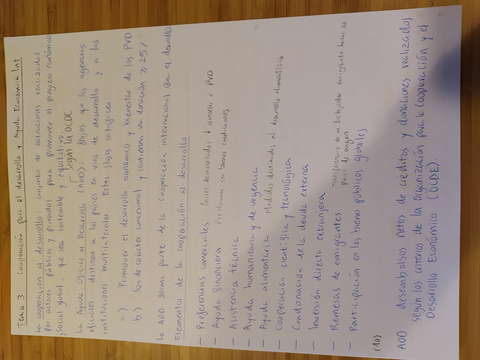 Tema 3 Cooperación para el desarrollo y Ayuda Económica Int
La cooperación al desarrollo: conjunto de actuaciones realizadas
por actores públicos y privados para promover el progreso económico
y social global, que sea sostenible y equitativo
Según la OCDE
La Ayuda Oficial al Desarrollo (AOD): flujos que las agencias
oficiales destinan a los países en vías de desarrollo y a las
instituciones multilaterales. Estos flujos
a) Promover el desarrollo económico y bienestar de los PVD
b) Son de carácter concesional y contienen donación ≥ 25%
La AOD forma parte de la cooperación internacional para el desarrollo
Elementos de la cooperación al desarrollo
- Preferencias comerciales
- Ayuda financiera
- Asistencia técnica
- Ayuda humanitaria y de urgencia
- Ayuda alimentaria
- Cooperación científica y tecnológica
- Condonación de la deuda externa
- Inversión directa extranjera
- Remesas de emigrantes
- Participación en los bienes públicos globales
(10)
AOD: desembolsos netos de créditos y donaciones realizados
según los criterios de la Organización para la Cooperación y el
Desarrollo Económico (OCDE)